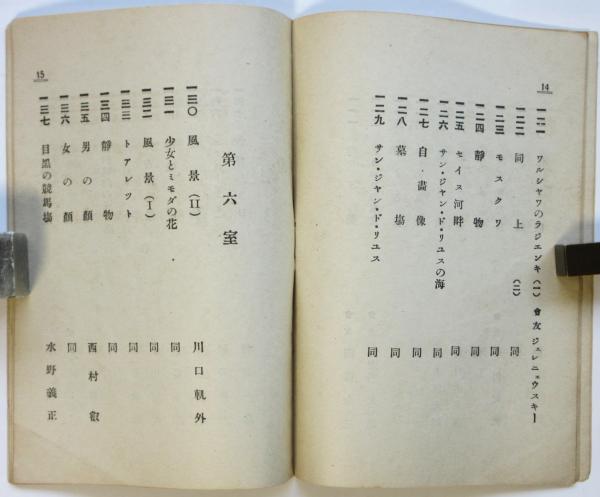 14
一二一 ワルシャワのラジエンキ(一) 會友 ジェレニェウスキー
一二二 同上 (二) 同
一二三 モスクワ 同
一二四 靜物 同
一二五 セイヌ河畔 同
一二六 サン・ジャン・ド・リユスの海 同
一二七 自畫像 同
一二八 墓塲 同
一二九 サン・ジャン・ド・リユス 同
15
第六室
一三〇 風景(II) 川口軌外
一三一 少女とミモダの花 同
一三二 風景(I) 同
一三三 トアレット 同
一三四 靜物 同
一三五 男の顏 西村叡
一三六 女の顏 同
一三七 目黒の競馬塲 水野義正